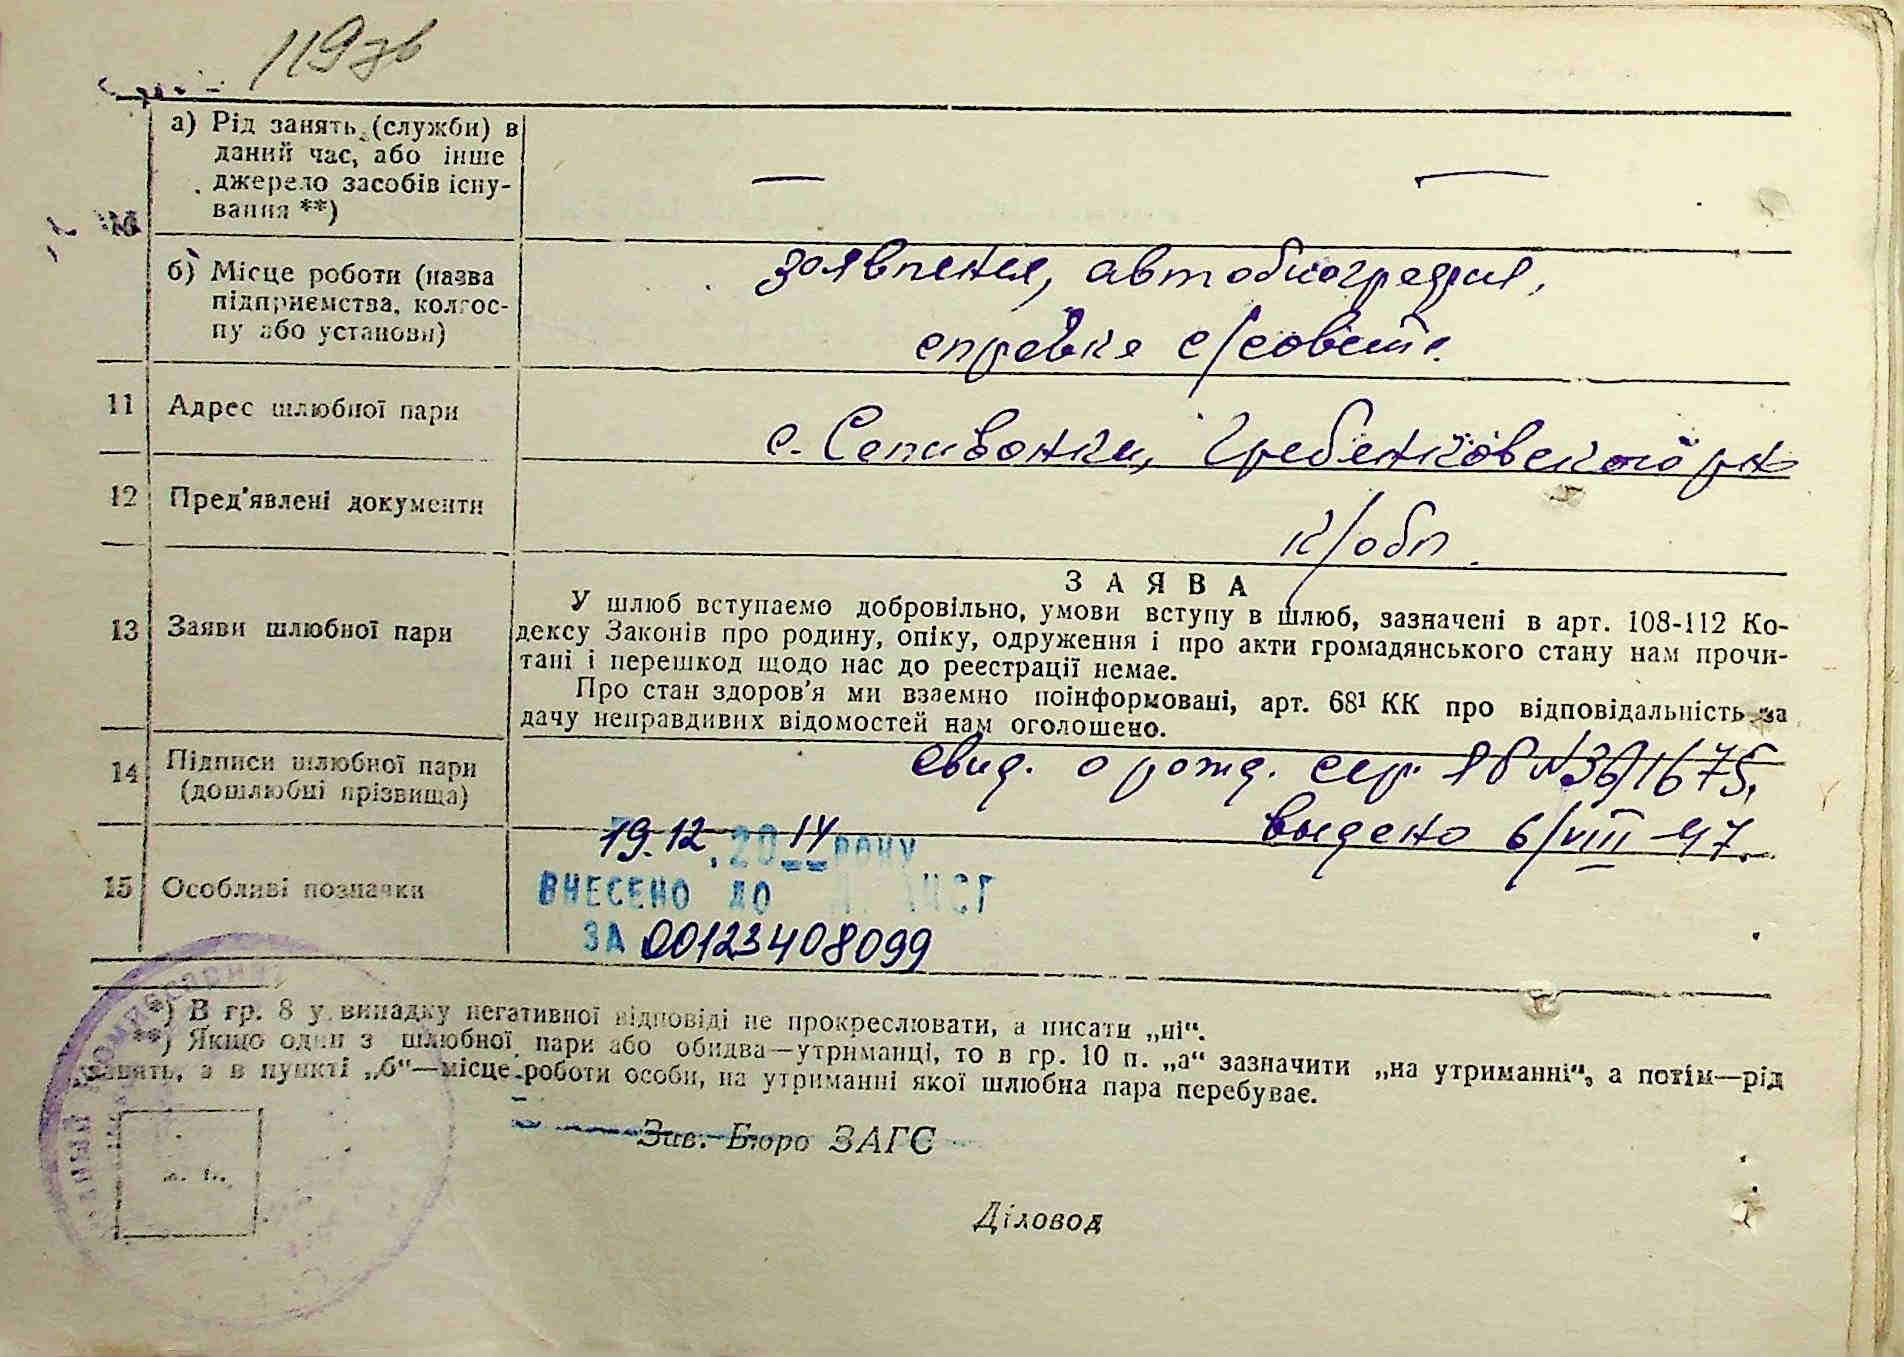 119зв
а) Рід занять (служби) в
даний час, або інше
джерело засобів існу-
вання **)
б) Місце роботи (назва
підприємства, колгос-
пу або установи)
заявления, автобиография,
справка с/совета.
11 Адрес шлюбної пари
с. Саливонки, Гребенковского р-на
12 Пред'явлені документи
К/обл.
13 Заяви шлюбної пари
ЗАЯВА
У шлюб вступаємо добровільно, умови вступу в шлюб, зазначені в арт. 108-112 Ко-
дексу Законів про родину, опіку, одруження і про акти громадянського стану нам прочи-
тані і перешкод щодо нас до реестрації немає.
Про стан здоров'я ми взаємно поінформовані, арт. 68¹ КК про відповідальність за
дачу неправдивих відомостей нам оголошено.
14 Підписи шлюбної пари
(дошлюбні прізвища)
свид. о рожд. сер. №391675,
выдано 6/VIII-47.
15 Особливі позначки
19.12.2014 року
ВНЕСЕНО ДО
ЗА 00123408099
*) В гр. 8 у випадку негативної відповіді не прокреслювати, а писати „ні“.
**) Якщо один з шлюбної пари або обидва—утриманці, то в гр. 10 п. „а“ зазначити „на утриманні“, а потім—рід
занять, а в пункті „б“—місце роботи особи, на утриманні якої шлюбна пара перебуває.
Зав. Бюро ЗАГС
Діловод